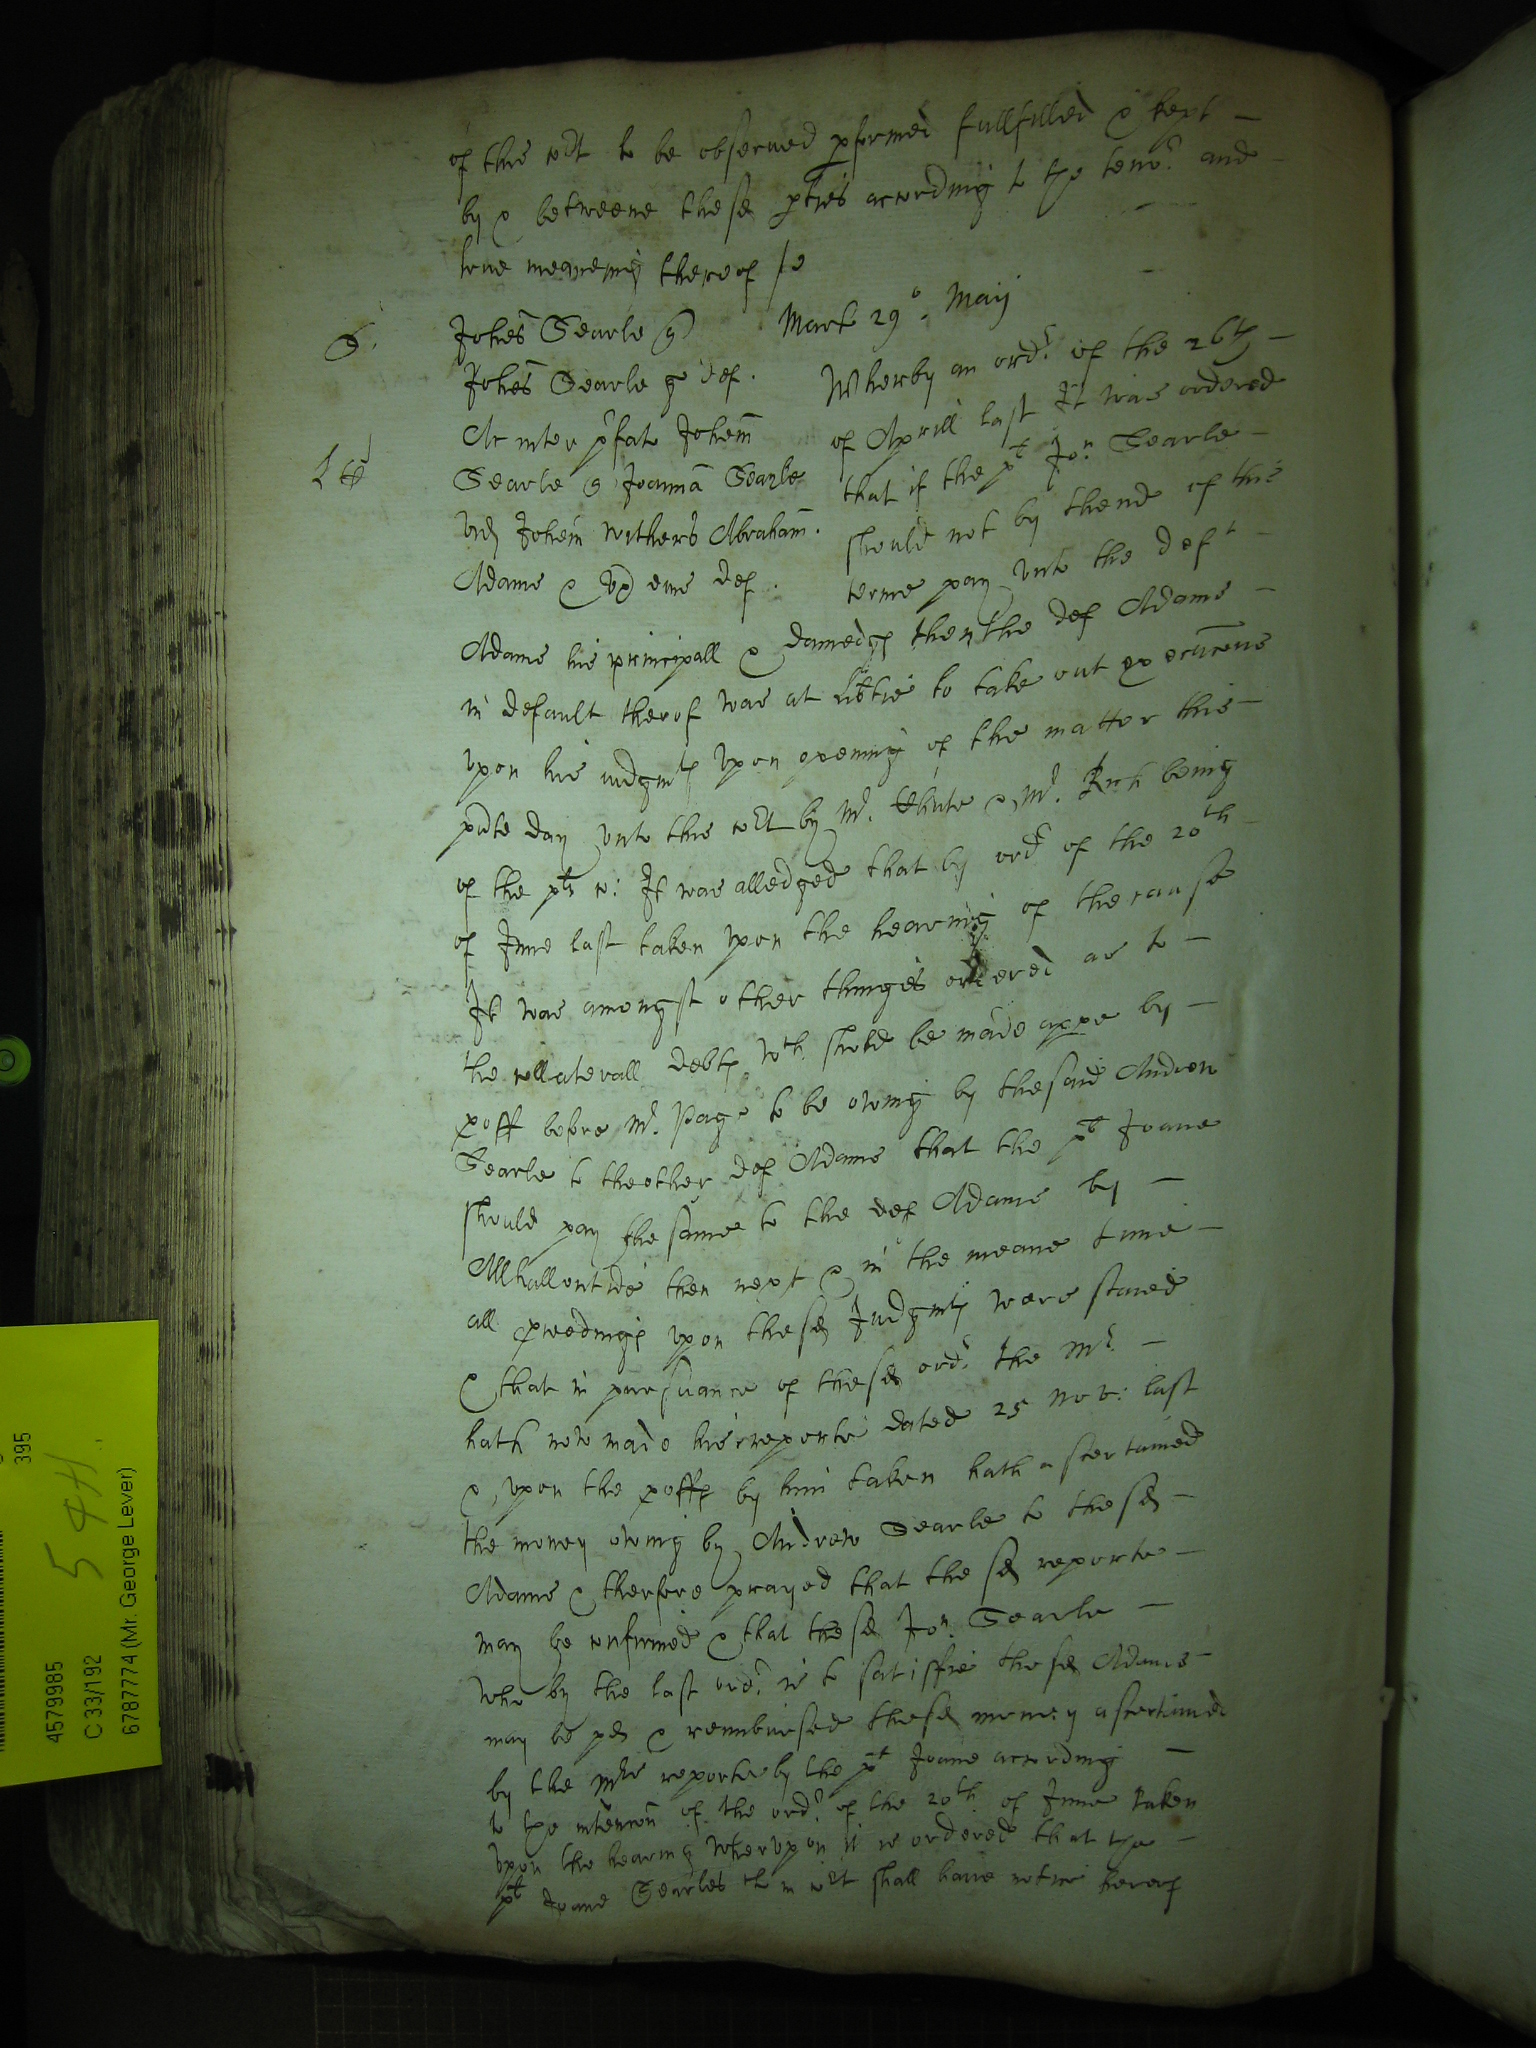 of this Cort to be observed pformed fullfilled & kept
by & betweene these pties according to the teno:r and
true meaneing thereof /
S.
Johes Searle q
Mart 29°. Maij
Johes Searle & def.
Wherby an ord:r of the 26th
Ac inter pfat Johem
of Aprill last It was ordered
Searle q Joanna Searle
that if the plt Jo:n Searle
vid Johem Withers Abraham
should not by thend of this
Adams & ux eius def.
terme pay unto the deft
Adams his principall & damedgs then the def Adams
in default therof was at libtie to take out execucons
upon his iudgmts Upon opening of the matter this
pnte day unto this Cort by Mr. Chute & Mr. Rich being
of the plts c: It was alledged that by ordr of the 20th
of June last taken upon the hearing of the cause
It was amongst other things ordered as to
the collaterall debts wch should be made appe by
poff before Mr. Page to be owing by the said Andrew
Searle to the other def Adams that the plt Joane
should pay the same to the def Adams by
Allhallontide then next & in the meane time
all pceedings upon these Judgmts were staied
& that in pursuance of the sd ord:r the Mr.
hath now made his reporte dated 25 Nov: last
& upon the poffs by him taken hath ascertained
the money owing by Andrew Searle to the sd
Adams & therfore prayed that the sd reporte
may be confirmed & that the sd Jo:n Searle
who by the last ord:r is to satisfie the sd Adams
may be pd & reimbursed the sd money ascertained
by the Mrs reporte by the plt Joane according
to the intencon of the ord:r of the 20th of June taken
upon the hearing Wherupon it is ordered that the
plt Joane Searles Clk in Cort shall have notice hereof
395
54H.
4579985
C 33/192
6787774 (Mr. George Lever)